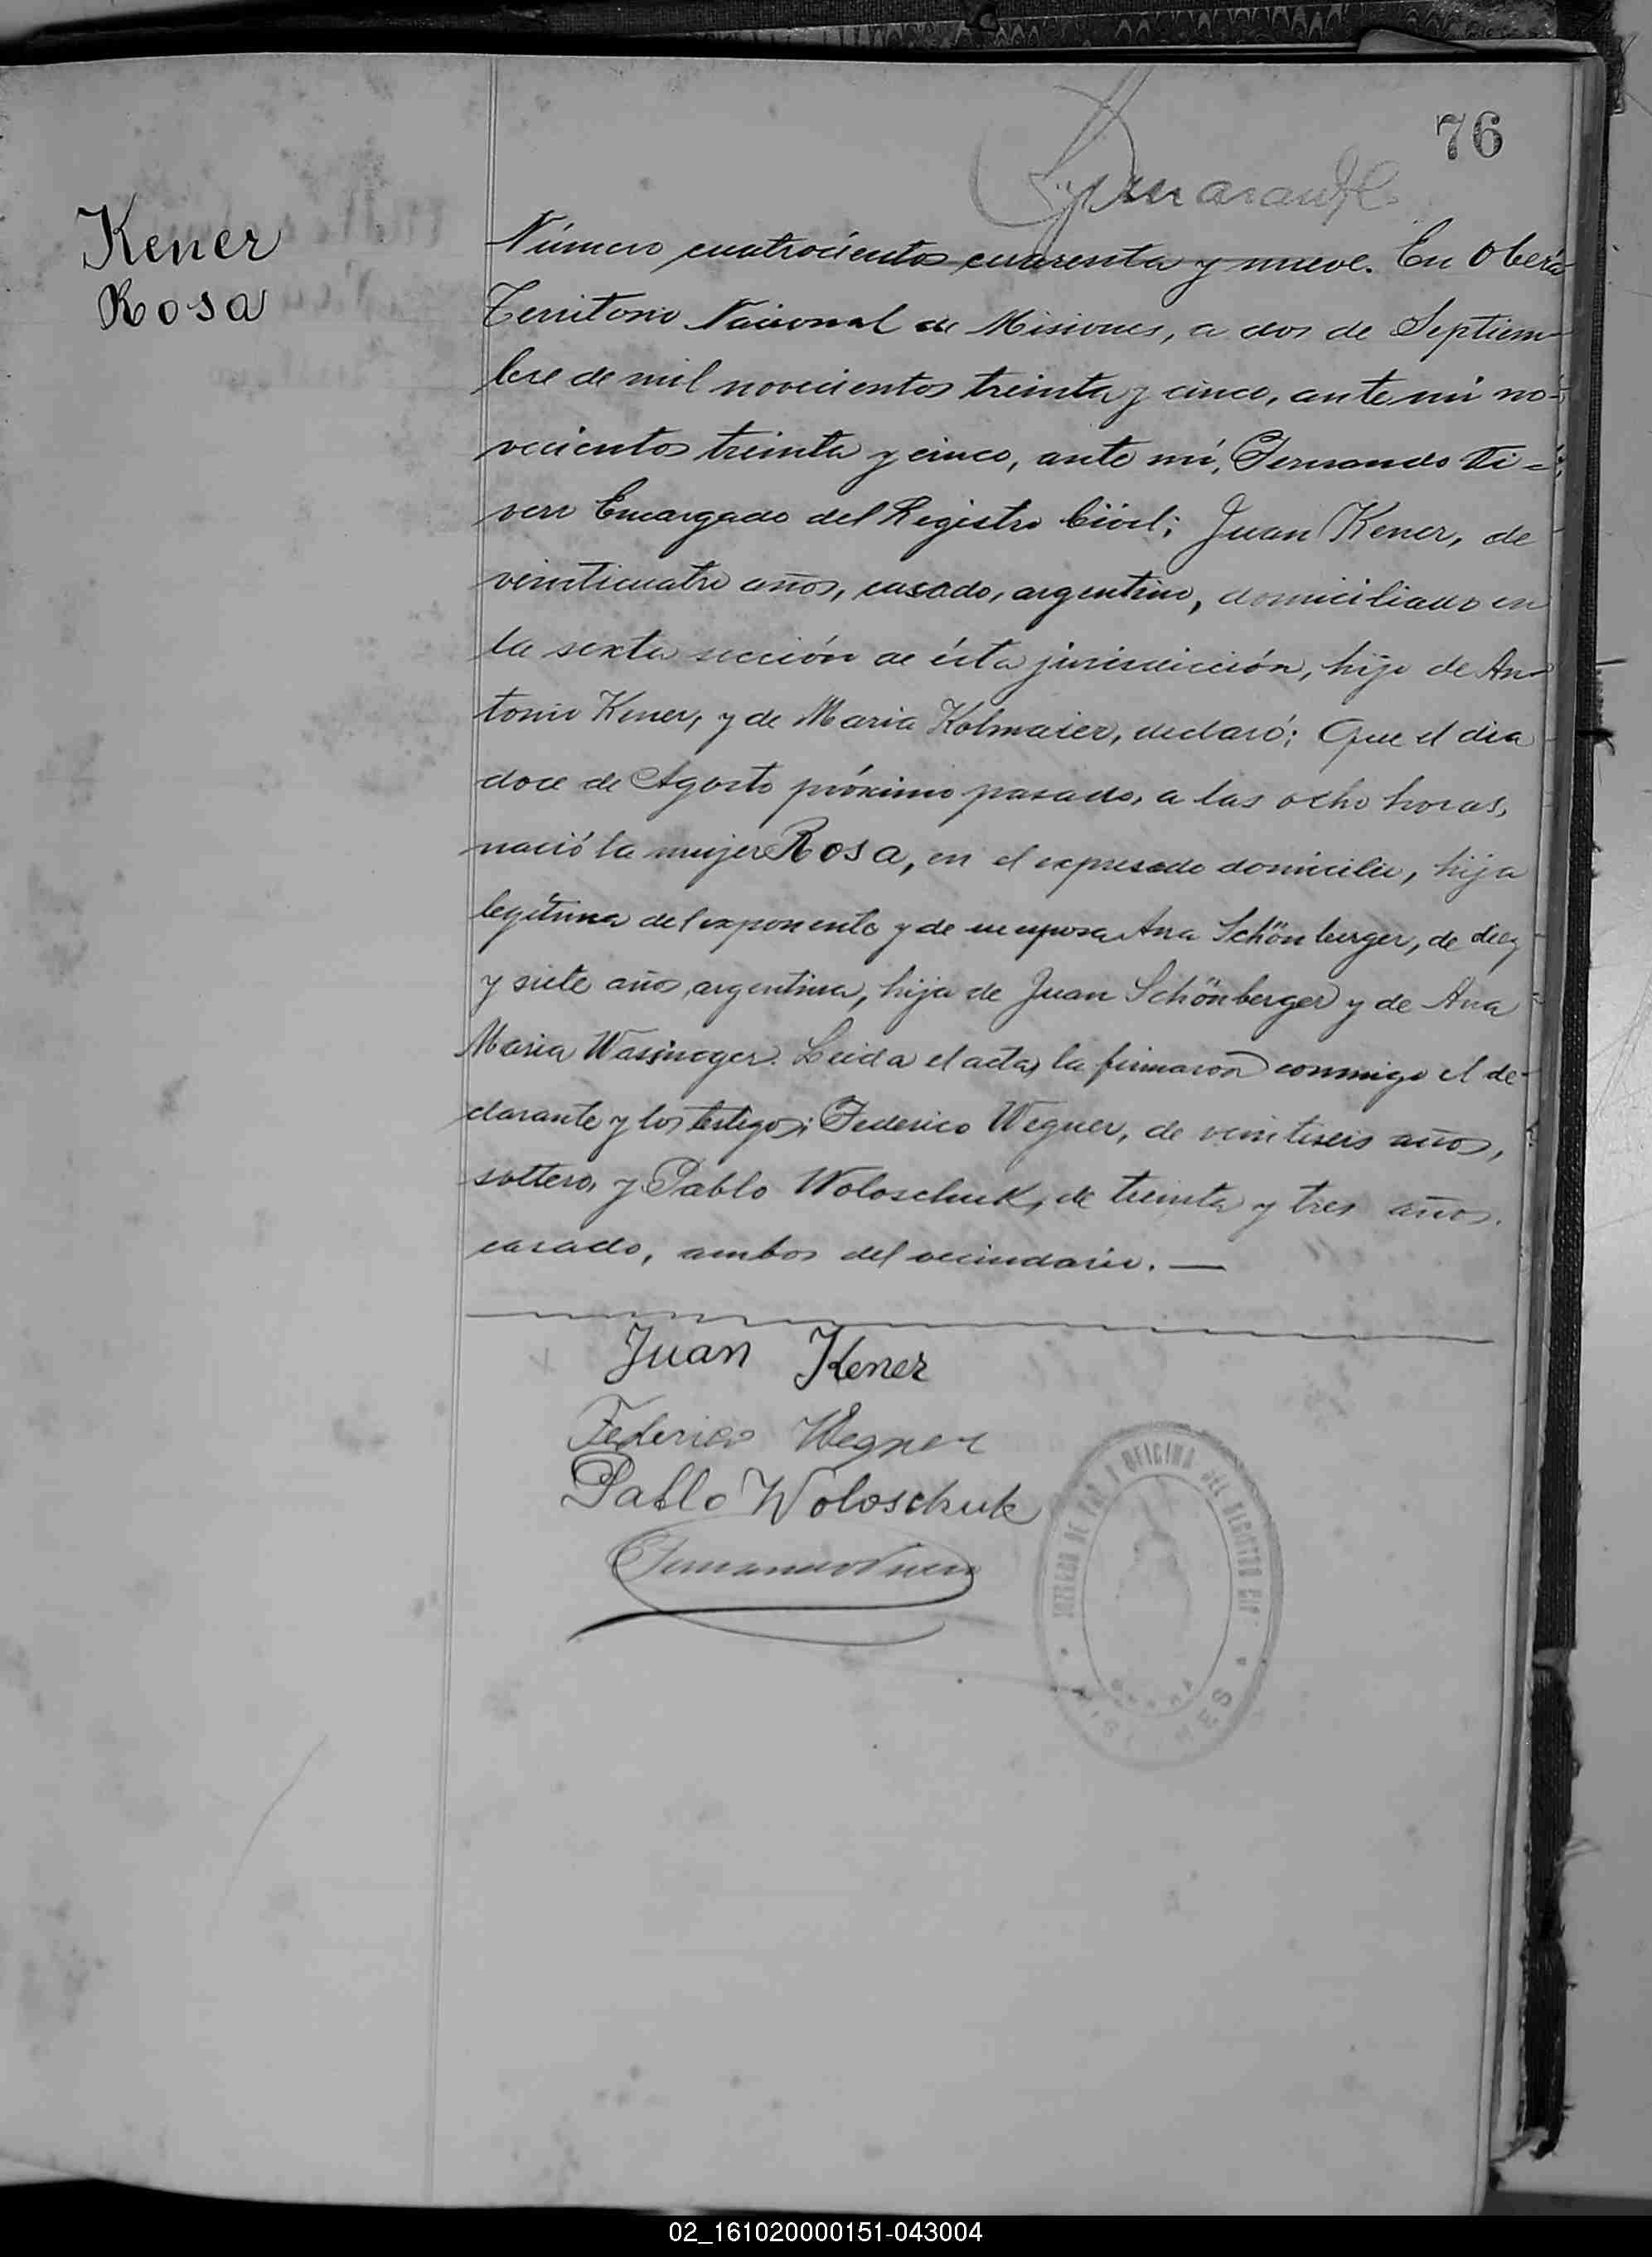 76
Kener
Rosa
Número cuatrocientos cuarenta y nueve. En Oberá
Territorio Nacional de Misiones, a dos de Septiem-
bre de mil novecientos treinta y cinco, ante mi no-
vecientos treinta y cinco, ante mí, Fernando Vi-
vero Encargado del Registro Civil; Juan Kener, de
veinticuatro años, casado, argentino, domiciliado en
la sexta sección de ésta jurisdicción, hijo de An-
tonio Kener, y de Maria Kolmaier, declaró; Que el dia
doce de Agosto próximo pasado, a las ocho horas,
nació la mujer Rosa, en el expresado domicilio, hija
legitima del exponente y de su esposa Ana Schönberger, de diez
y siete años, argentina, hija de Juan Schönberger y de Ana
Maria Leida el acta, la firmaron conmigo el de-
clarante y los testigos; Federico Wegner, de veintiseis años,
soltero, y Pablo Woloschuk, de treinta y tres años.
casado, ambos del vecindario. —
Juan Kener
Federico Wegner
Pablo Woloschuk
JUZGADO DE PAZ Y OFICINA DEL REGISTRO CIV
MISIONES
02_161020000151-043004